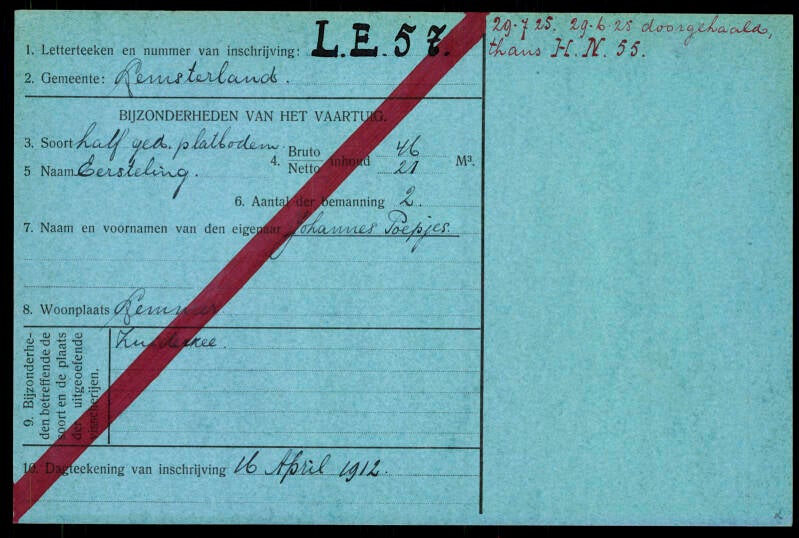 1. Letterteeken en nummer van inschrijving: L.E. 57.
2. Gemeente: Lemsterland.
BIJZONDERHEDEN VAN HET VAARTUIG.
3. Soort half ged. platbodem.
4. Bruto inhoud 46 M³.
Netto 21
5 Naam Eersteling.
6. Aantal der bemanning 2.
7. Naam en voornamen van den eigenaar Johannes Poepjes.
8. Woonplaats Lemmer
9. Bijzonderhe-
den betreffende de
soort en de plaats
der uitgeoefende
visscherijen.
Zuiderzee.
10. Dagteekening van inschrijving 16 April 1912.
29-7 25. 29-6-25 doorgehaald,
thans H.N. 55.